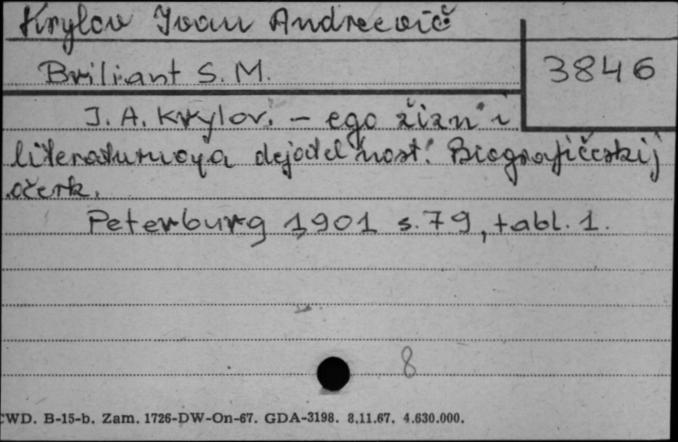 Krylov Ivan Andreevič
Briliant S. M.
3846
I. A. Krylov. - ego žizn' i
literaturnoya dejatel'nost'. Biografičeskij
očerk.
Peterburg 1901 s. 79, tabl. 1.
8
CWD. B-15-b. Zam. 1726-DW-On-67. GDA-3198. 8.11.67. 4.630.000.